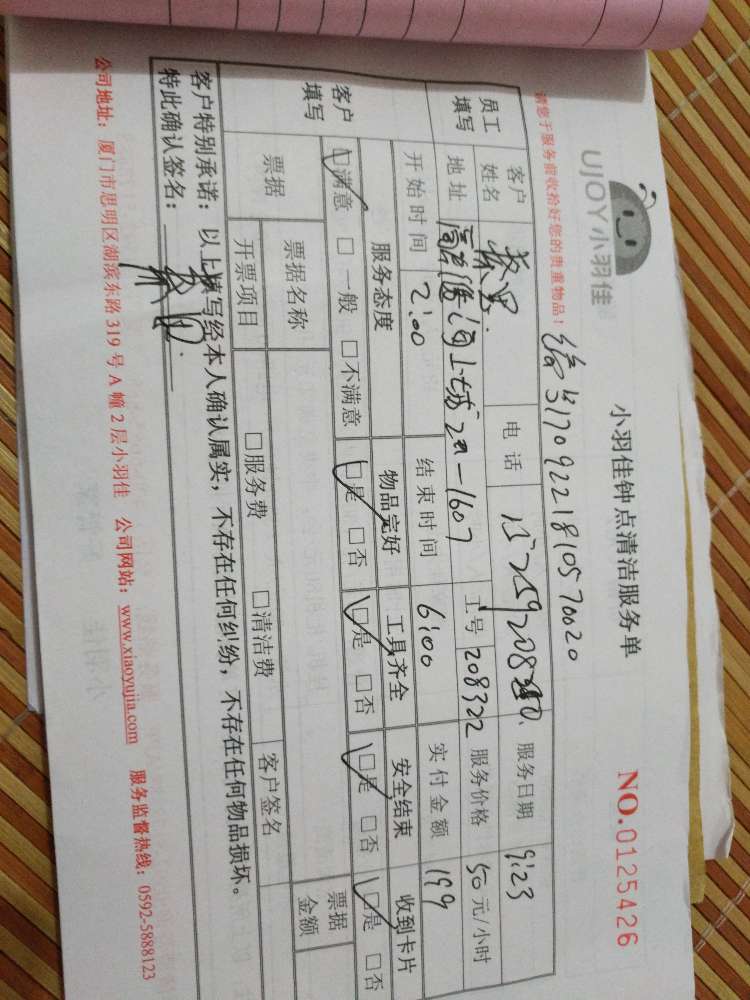 UJOY小羽佳
小羽佳钟点清洁服务单
NO.0125426
请您于服务前收拾好您的贵重物品!
31709221810570020
员工填写
客户姓名
电话
服务日期 9:23
地址
2R-1607
工号 208322
服务价格 50元/小时
开始时间 2:00
结束时间 6:00
实付金额 199
客户填写
服务态度 物品完好 工具齐全 安全结束 收到卡片
☑满意 □一般 □不满意 ☑是 □否 ☑是 □否 ☑是 □否 ☑是 □否
票据
票据名称
客户签名
票据金额
开票项目 □服务费 □清洁费
客户特别承诺:以上填写经本人确认属实,不存在任何纠纷,不存在任何物品损坏。
特此确认签名:
公司地址:厦门市思明区湖滨东路319号A幢2层小羽佳 公司网站:www.xiaoyujia.com 服务监督热线:0592-5888123